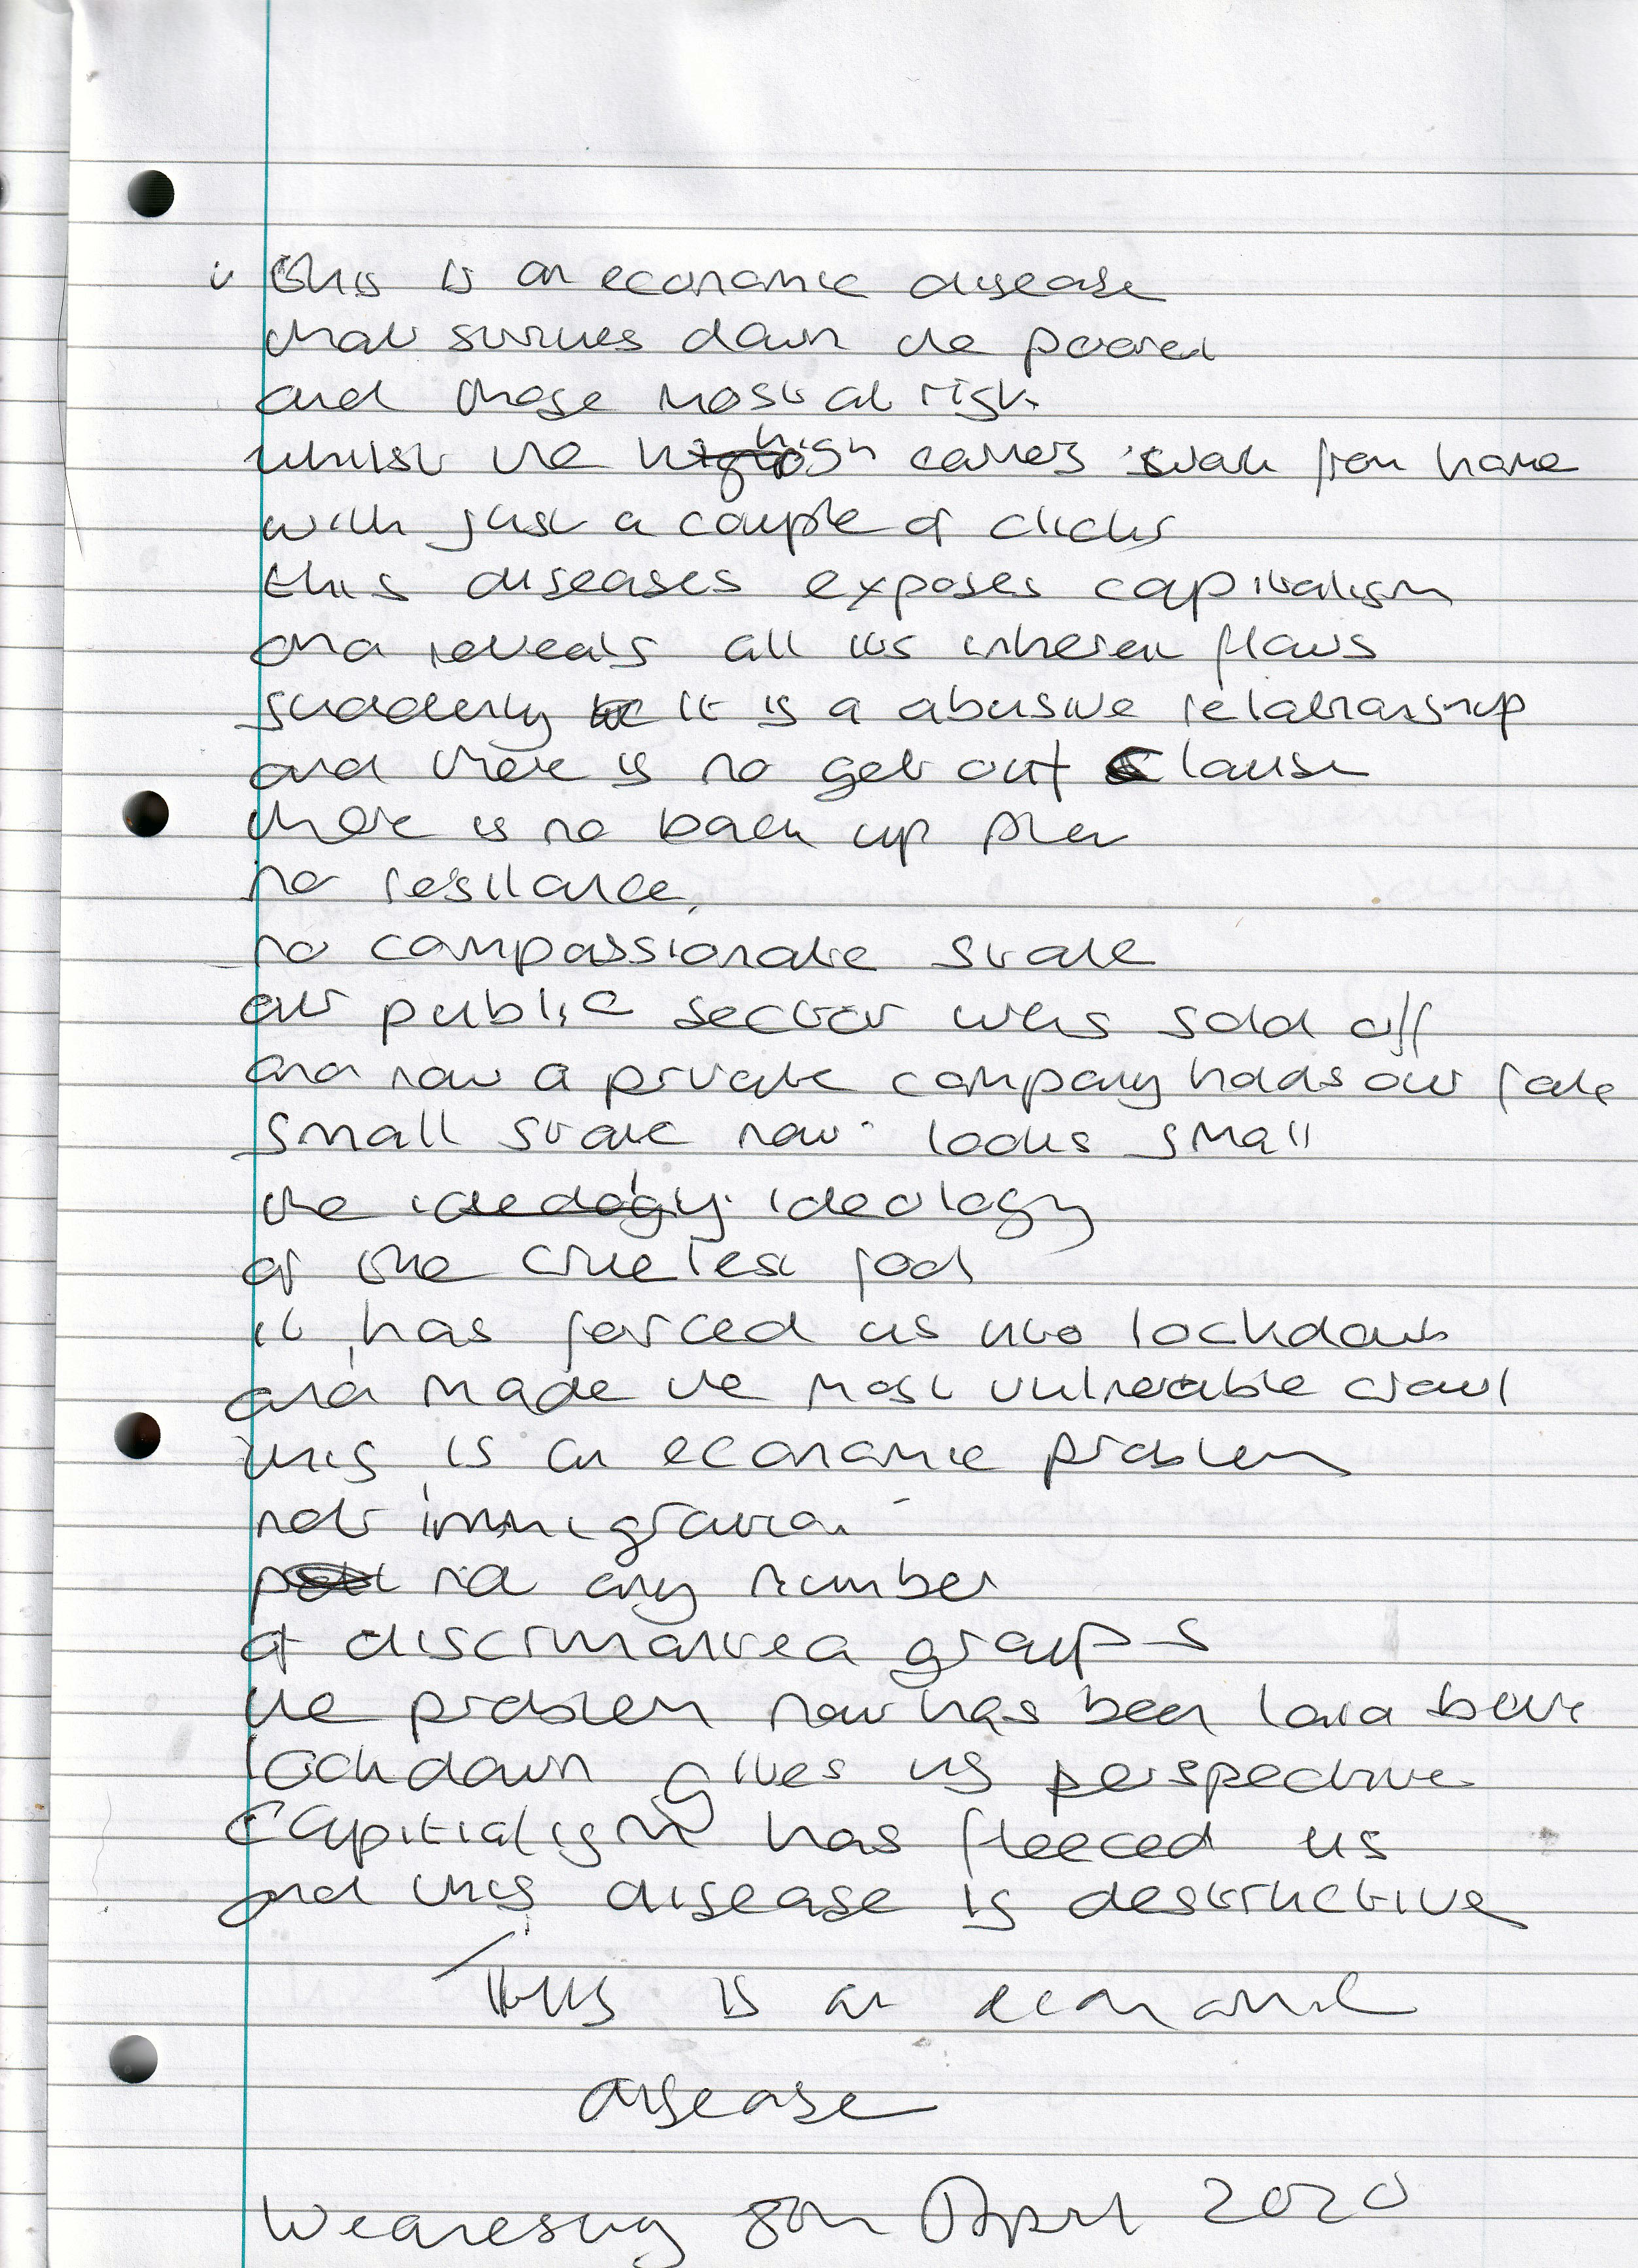 this is an economic disease
that strikes down the poorest
and those most at risk
whilst the high earners work from home
with just a couple of clicks
this diseases exposes capitalism
and reveals all its inherent flaws
suddenly it is a abusive relationship
and there is no get out clause
there is no back up plan
no resilance
no compassionate state
our public sector was sold off
and now a private company holds our fate
small state now looks small
the ideology ideology
of the cruelest fool
it has forced us into lockdown
and made the most vulnerable crawl
this is an economic problem
not immigration
not any number
of discriminated groups
the problem now has been laid bare
lockdown gives us perspective
Capitialism has fleeced us
and this disease is destructive
This is an economic
disease
Wednesday 8th April 2020